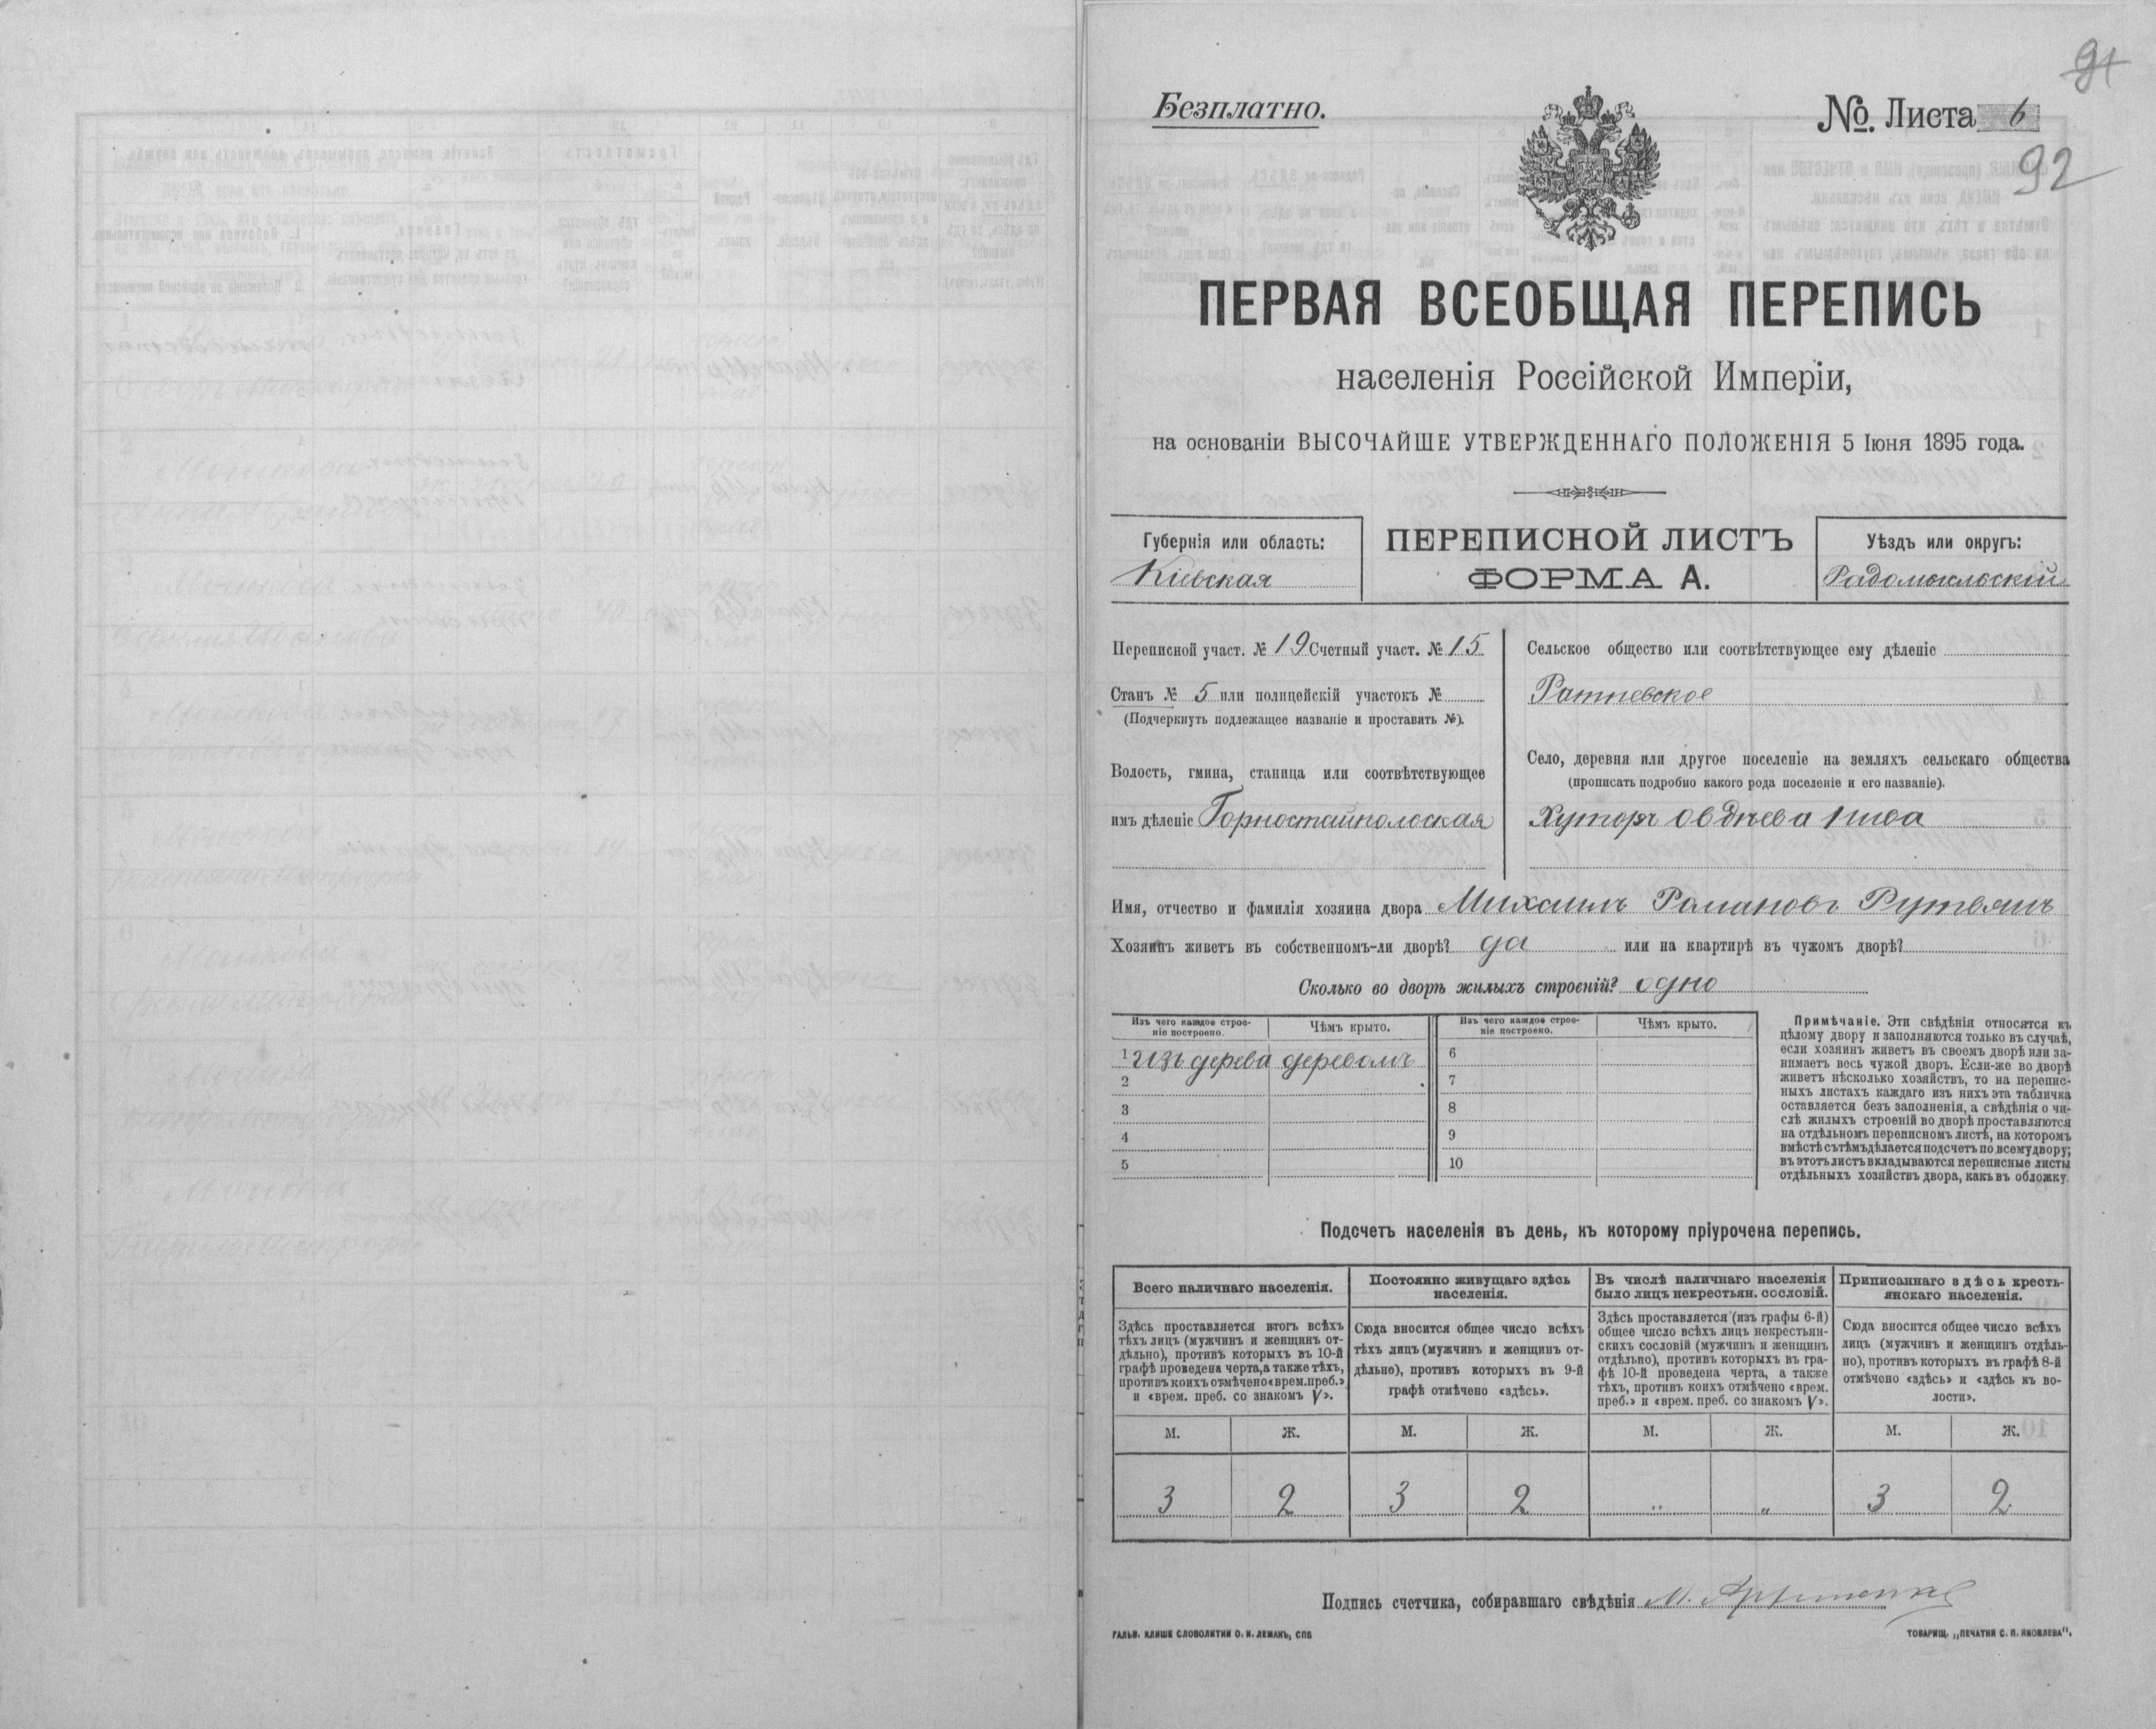 91
Безплатно.
№. Листа 6
92
ПЕРВАЯ ВСЕОБЩАЯ ПЕРЕПИСЬ
населенія Россійской Имперіи,
на основаніи ВЫСОЧАЙШЕ УТВЕРЖДЕННАГО ПОЛОЖЕНІЯ 5 Іюня 1895 года.
Губернія или область:
Кіевская
ПЕРЕПИСНОЙ ЛИСТЪ
ФОРМА А.
Уѣздъ или округъ:
Радомысльскій
Переписной участ. № 19 Счетный участ. № 15
Станъ № 5 или полицейскій участокъ №
(Подчеркнуть подлежащее названіе и проставить №).
Волость, гмина, станица или соотвѣтствующее
имъ дѣленіе Горностайпольская
Сельское общество или соотвѣтствующее ему дѣленіе
Ратневское
Село, деревня или другое поселеніе на земляхъ сельскаго общества
(прописать подробно какого рода поселеніе и его названіе).
Хуторъ Овдѣева Нива
Имя, отчество и фамилія хозяина двора Михаилъ Романовъ
Хозяинъ живетъ въ собственномъ-ли дворѣ? да или на квартирѣ въ чужомъ дворѣ?
Сколько во дворѣ жилыхъ строеній? одно
Изъ чего каждое строе-
ніе построено.
Чѣмъ крыто.
Изъ чего каждое строе-
ніе построено.
Чѣмъ крыто.
1 изъ дерева деревомъ 6
2 7
3 8
4 9
5 10
Примѣчаніе. Эти свѣдѣнія относятся къ
цѣлому двору и заполняются только въ случаѣ,
если хозяинъ живетъ въ своемъ дворѣ или за-
нимаетъ весь чужой дворъ. Если-же во дворѣ
живетъ нѣсколько хозяйствъ, то на перепис-
ныхъ листахъ каждаго изъ нихъ эта табличка
оставляется безъ заполненія, а свѣдѣнія о чи-
слѣ жилыхъ строеній во дворѣ проставляются
на отдѣльномъ переписномъ листѣ, на которомъ
вмѣстѣ съ тѣмъ дѣлается подсчетъ по всему двору;
въ этотъ листъ вкладываются переписные листы
отдѣльныхъ хозяйствъ двора, какъ въ обложку.
Подсчетъ населенія въ день, къ которому пріурочена перепись.
Всего наличнаго населенія.
Здѣсь проставляется итогъ всѣхъ
тѣхъ лицъ (мужчинъ и женщинъ от-
дѣльно), противъ которыхъ въ 10-й
графѣ проведена черта, а также тѣхъ,
противъ коихъ отмѣчено «врем. преб.»
и «врем. преб. со знакомъ V».
Постоянно живущаго здѣсь
населенія.
Сюда вносится общее число всѣхъ
тѣхъ лицъ (мужчинъ и женщинъ от-
дѣльно), противъ которыхъ въ 9-й
графѣ отмѣчено «здѣсь».
Въ числѣ наличнаго населенія
было лицъ некрестьян. сословій.
Здѣсь проставляется (изъ графы 6-й)
общее число всѣхъ лицъ некрестьян-
скихъ сословій (мужчинъ и женщинъ
отдѣльно), противъ которыхъ въ гра-
фѣ 10-й проведена черта, а также
тѣхъ, противъ коихъ отмѣчено «врем.
преб.» и «врем. преб. со знакомъ V».
Приписаннаго здѣсь кресть-
янскаго населенія.
Сюда вносится общее число всѣхъ
лицъ (мужчинъ и женщинъ отдѣль-
но), противъ которыхъ въ графѣ 8-й
отмѣчено «здѣсь» и «здѣсь къ во-
лости».
М. Ж. М. Ж. М. Ж. М. Ж.
3 2 3 2 „ „ 3 2
Подпись счетчика, собиравшаго свѣдѣнія М.
ГАЛЬВ. КЛИШЕ СЛОВОЛИТНИ О. И. ЛЕМАНЪ, СПБ
ТОВАРИЩ. „ПЕЧАТНЯ С. П. ЯКОВЛЕВА".